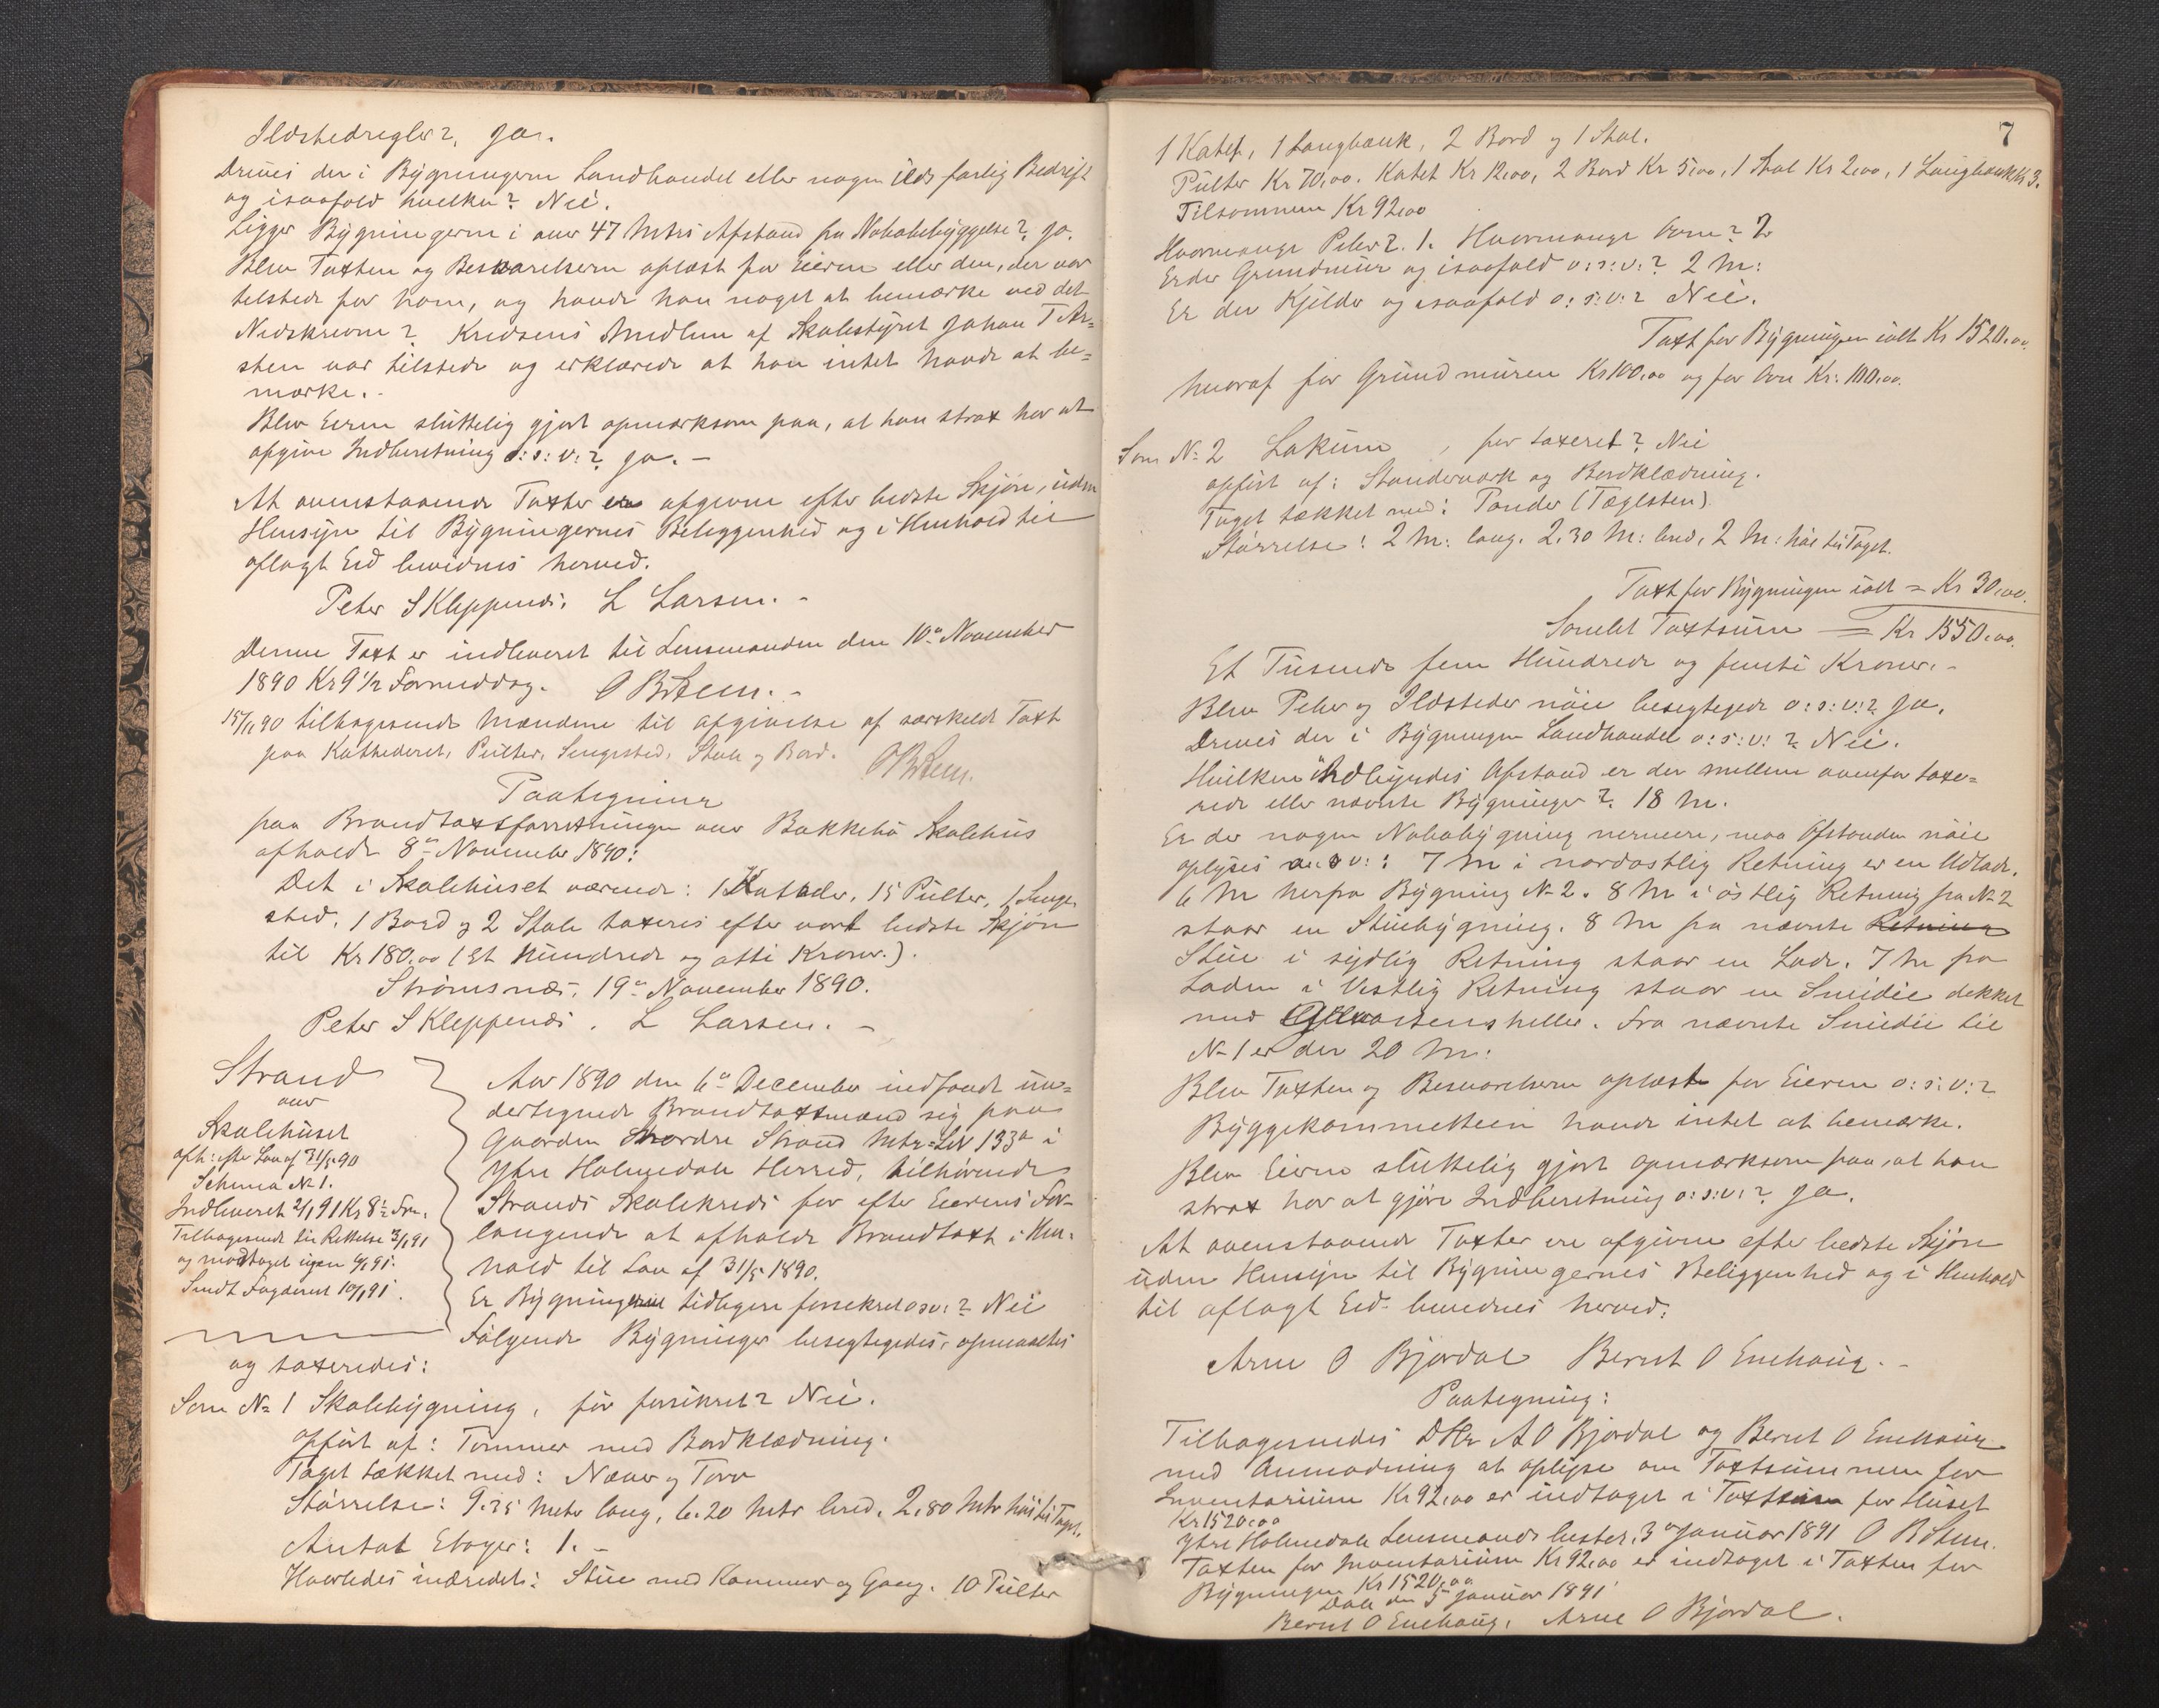 Ildstedregler? Ja.
Drives der i Bygningerne Landhandel eller nogen ildsfarlig Bedrift
og isaafald hvilken? Nei.
Ligger Bygningerne i over 47 Mtrs Afstand fra Nabobebyggelse? Ja.
Blev Taxten og Besvarelserne oplæst for Eieren eller den, der var
tilstede for ham, og havde han noget at bemærke ved det
Nedskrevne? Kredsens Medlem af Skolestyret Johan T Ar-
sten var tilstede og erklærede at han intet havde at be-
mærke.
Blev Eieren sluttelig gjort opmærksom paa, at han strax har at
afgive Indberetning o: s: v:? Ja. –
At ovenstaaende Taxter ere afgivne efter bedste Skjøn, uden
Hensyn til Bygningernes Beliggenhed og i Henhold til
aflagt Eed bevidnes herved.
Peter S Kleppenes. L Larsen. –
Denne Taxt er indleveret til Lensmanden den 10de November
1890 Kl 9 1/2 Formiddag. O B
15/11 90 tilbagesendt Mændene til Afgivelse af særskildt Taxt
paa Kathederet, Pulter, Sengested, Stole og Bord. O B
Paategning
paa Brandtaxtforretningen over Bakkebø Skolehus
afholdt 8de November 1890:
Det i Skolehuset værende: 1 Katheder, 15 Pulter, 1 Senge-
sted, 1 Bord og 2 Stole taxeres efter vort bedste Skjøn
til Kr 180,00 (Et Hundrede og otti Kroner).
Strømsnæs, 19de November 1890.
Peter S Kleppenes. L Larsen. –
Strand
over
Skolehuset
afh: efter Lov af 31/5 90
Schema No 1.
Indleveret 2/1 91 Kl 8 1/2 Fm.
Tilbagesendt til Rettelse 3/1 91
og modtaget igjen 9/1 91.
Sendt Fogderiet 10/1 91.
Aar 1890 den 6te December indfandt un-
dertegnede Brandtaxtmænd sig paa
Gaarden Nordre Strand Mtr: Lbr 133a i
Ytre Holmedals Herred, tilhørende
Strands Skolekreds for efter Eierens For-
langende at afholde Brandtaxt i Hen-
hold til Lov af 31/5 1890.
Er Bygningerne tidligere forsikret osv:? Nei
Følgende Bygninger besigtigedes, opmaaltes
og taxeredes:
Som No 1 Skolebygning, før forsikret? Nei.
opført af: Tømmer med Bordklædning.
Taget tækket med: Næver og Torv
Størrelse: 9.35 Meter lang, 6.20 Metr bred. 2.80 Mtr høi til Taget.
Antal Etager: 1. –
Hvorledes indredet: Stue med Kammer og Gang. 10 Pulter
7
1 Kateh., 1 Langbænk, 2 Bord og 1 Stol.
Pulter Kr 70,00. Katet Kr 12,00, 2 Bord Kr 5,00, 1 Stol Kr 2,00, 1 Langbænk Kr 3.
Tilsammen Kr 92,00
Hvormange Piber? 1. Hvormange Ovne? 2
Er der Grundmur og isaafald o: s: v:? 2 M:
Er der Kjelder og isaafald o: s: v:? Nei.
Taxt for Bygningen ialt Kr 1520,00.
hvoraf for Grundmuren Kr 100,00 og for Ovne Kr: 100,00.
Som No 2 Lokum, før taxeret? Nei
opført af: Stenderværk og Bordklædning.
Taget tækket med: Pander (Taglsten).
Størrelse: 2 M: lang. 2.30 M: bred, 2 M: høi til Taget.
Taxt for Bygningen ialt = Kr 30,00.
Samlet Taxtsum = Kr 1550,00.
Et Tusende fem Hundrede og femti Kroner. –
Blev Piber og Ildsteder nøie besigtigede o: s: v:? Ja.
Drives der i Bygningen Landhandel o: s: v:? Nei.
Hvilken indbyrdes Afstand er der mellem ovenfor taxe-
rede eller nævnte Bygninger? 18 M.
Er der nogen Nabobygning nærmere, maa Afstanden nøie
oplyses o: s: v:: 7 M i nordøstlig Retning er en Udlade.
6 M herfra Bygning No 2. 8 M i østlig Retning fra No 2
staar en Stuebygning. 8 M fra nævnte Retning
Stue i sydlig Retning staar en Lade. 7 M fra
Laden i Vestlig Retning staar en Smidie dekket
med heller. Fra nævnte Smidie til
No 1 er der 20 M:
Blev Taxten og Besvarelserne oplæst for Eieren o: s: v:?
Byggekommitteen havde intet at bemærke.
Blev Eieren sluttelig gjort opmærksom paa, at han
strax har at gjøre Indberetning o: s: v:? Ja.
At ovenstaaende Taxter ere afgivne efter bedste Skjøn
uden Hensyn til Bygningernes Beliggenhed og i Henhold
til aflagt Eed bevidnes herved:
Arne O Bjordal Bernt O Enehaug. –
Paategning:
Tilbagesendes DHr A O Bjordal og Bernt O Enehaug
med Anmodning at oplyse om Taxtsummen for
Inventarium Kr 92,00 er indtaget i Taxtsum for Huset
Kr 1520,00
Ytre Holmedals Lensmandsbestil. 3de Januar 1891 O B
Taxten for Inventarium Kr 92,00 er indtaget i Taxten for
Bygningen Kr 1520,00
Dale den 5 Januar 1891
Bernt O Enehaug. Arne O Bjordal.